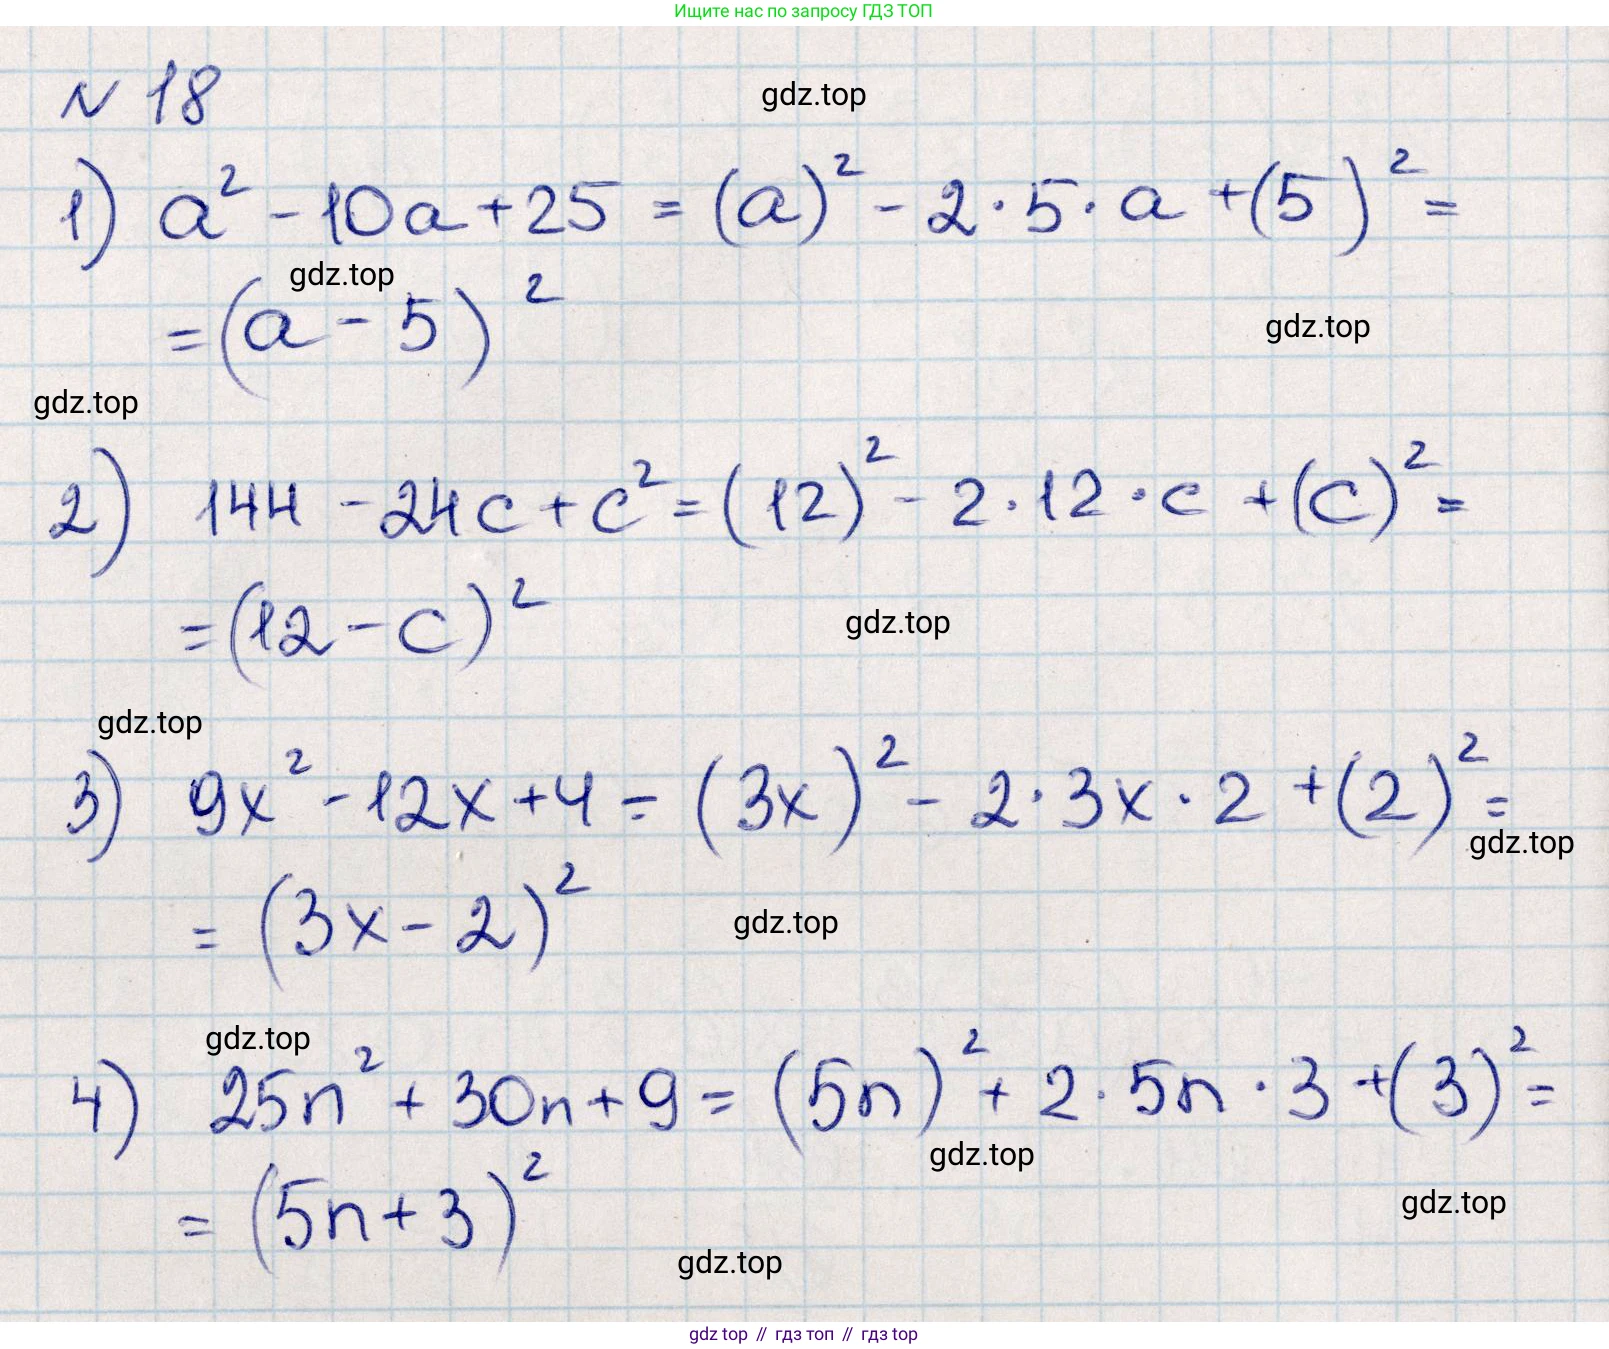 Ищите нас по запросу ГДЗ ТОП
N 18
gdz.top
1) a² - 10a + 25 = (a)² - 2·5·a + (5)² =
gdz.top
= (a - 5)²
gdz.top
gdz.top
2) 144 - 24c + c² = (12)² - 2·12·c + (c)² =
= (12 - c)²
gdz.top
gdz.top
3) 9x² - 12x + 4 = (3x)² - 2·3x·2 + (2)² =
gdz.top
= (3x - 2)²
gdz.top
gdz.top
4) 25n² + 30n + 9 = (5n)² + 2·5n·3 + (3)² =
gdz.top
= (5n + 3)²
gdz.top
gdz.top
gdz top // гдз топ // gdz top